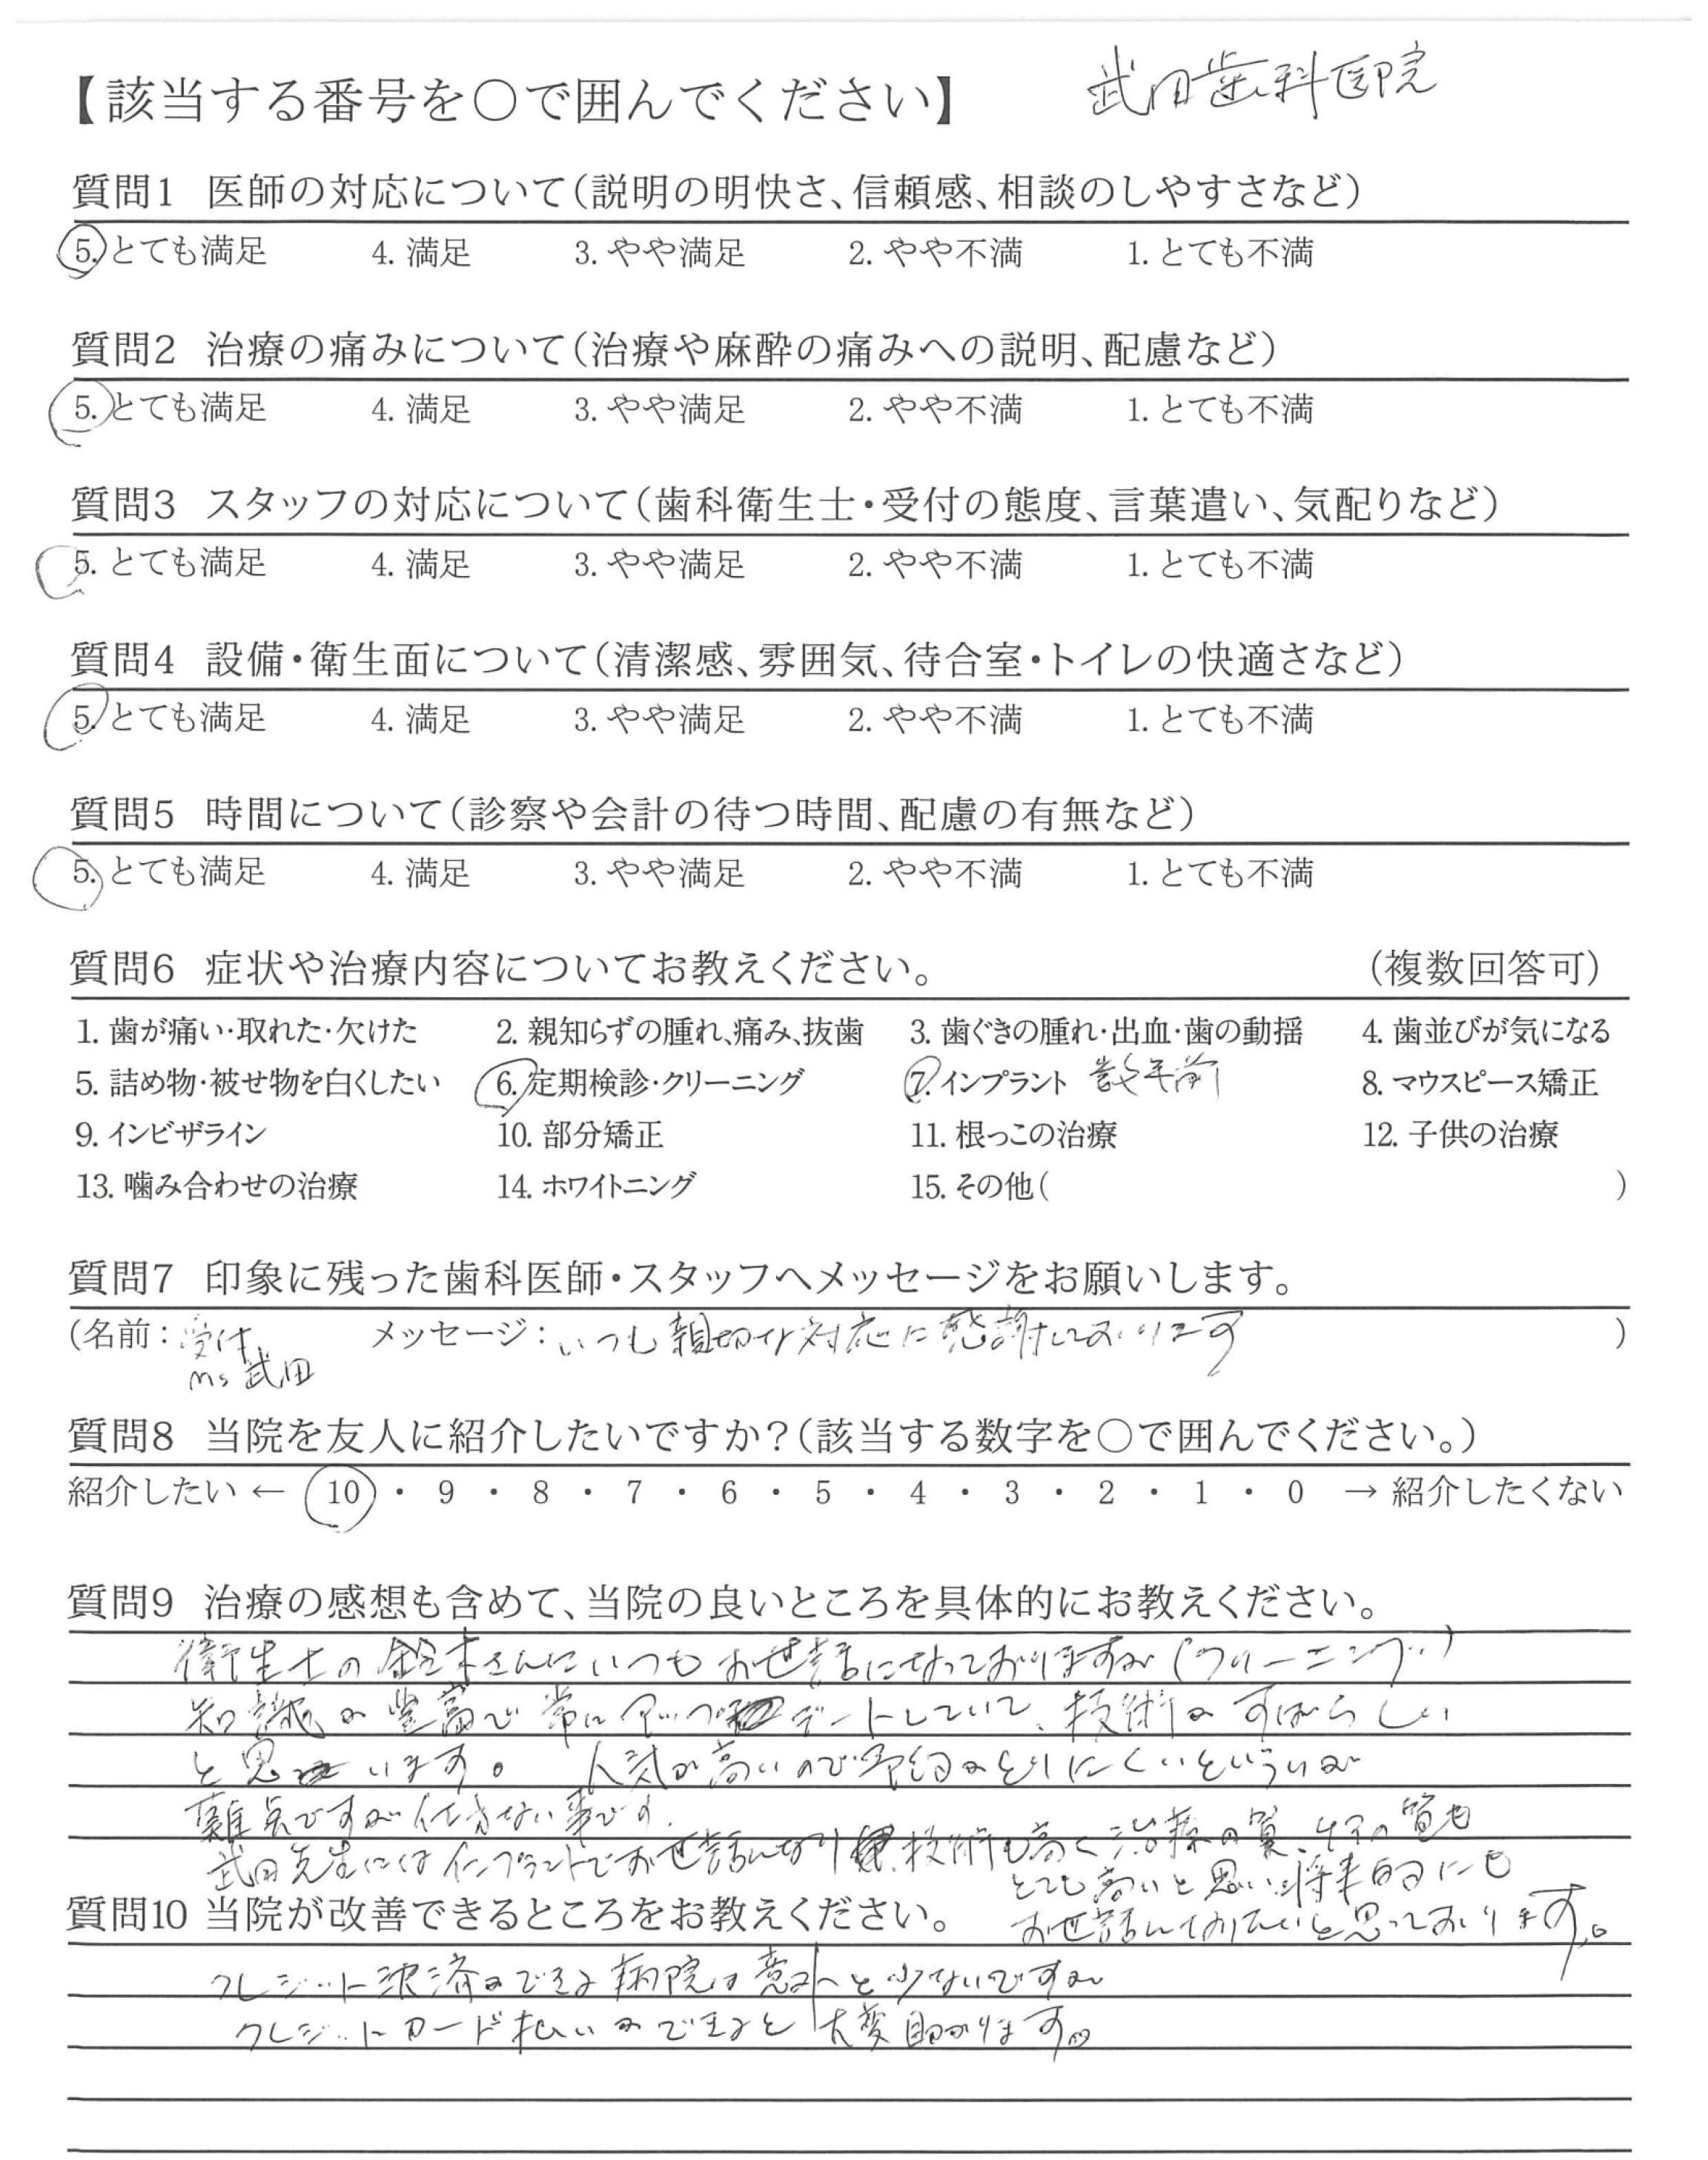 【該当する番号を○で囲んでください】 武田歯科医院
質問1 医師の対応について(説明の明快さ、信頼感、相談のしやすさなど)
5. とても満足 4. 満足 3. やや満足 2. やや不満 1. とても不満
質問2 治療の痛みについて(治療や麻酔の痛みへの説明、配慮など)
5. とても満足 4. 満足 3. やや満足 2. やや不満 1. とても不満
質問3 スタッフの対応について(歯科衛生士・受付の態度、言葉遣い、気配りなど)
5. とても満足 4. 満足 3. やや満足 2. やや不満 1. とても不満
質問4 設備・衛生面について(清潔感、雰囲気、待合室・トイレの快適さなど)
5. とても満足 4. 満足 3. やや満足 2. やや不満 1. とても不満
質問5 時間について(診察や会計の待つ時間、配慮の有無など)
5. とても満足 4. 満足 3. やや満足 2. やや不満 1. とても不満
質問6 症状や治療内容についてお教えください。 (複数回答可)
1. 歯が痛い・取れた・欠けた 2. 親知らずの腫れ、痛み、抜歯 3. 歯ぐきの腫れ・出血・歯の動揺 4. 歯並びが気になる
5. 詰め物・被せ物を白くしたい 6. 定期検診・クリーニング 7. インプラント 数年前 8. マウスピース矯正
9. インビザライン 10. 部分矯正 11. 根っこの治療 12. 子供の治療
13. 噛み合わせの治療 14. ホワイトニング 15. その他( )
質問7 印象に残った歯科医師・スタッフへメッセージをお願いします。
(名前:受付 メッセージ:いつも親切な対応に感謝しております )
Ms 武田
質問8 当院を友人に紹介したいですか?(該当する数字を○で囲んでください。)
紹介したい ← 10 ・ 9 ・ 8 ・ 7 ・ 6 ・ 5 ・ 4 ・ 3 ・ 2 ・ 1 ・ 0 → 紹介したくない
質問9 治療の感想も含めて、当院の良いところを具体的にお教えください。
衛生士の鈴木さんにいつもお世話になっておりますが(クリーニング)
知識が豊富で常にアップデートしていて、技術がすばらしい
と思います。 人気が高いので予約がとりにくいというのが
難点ですが仕方ない事です.
武田先生にはインプラントでお世話になり 技術も高く治療の質、ケアの質も
とても高いと思い、将来的にも
お世話になりたいと思っております。
質問10 当院が改善できるところをお教えください。
クレジット決済ができる病院は意外と少ないですが
クレジットカード払いができると大変助かります。